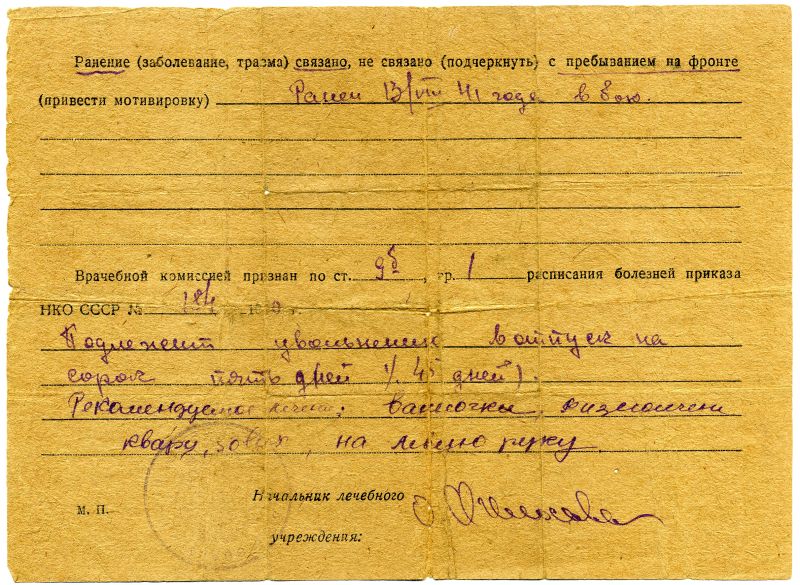 Ранение (заболевание, травма) связано, не связано (подчеркнуть) с пребыванием на фронте
(привести мотивировку) Ранен 13/VIII 41 года в бою.
Врачебной комиссией признан по ст. 9б, гр. 1 расписания болезней приказа
НКО СССР № 184
Подлежит увольнению в отпуск на
сорок пять дней (45 дней).
Рекомендуемое лечение: ванночки,
кварц, на левую руку.
Начальник лечебного
М. П.
учреждения: